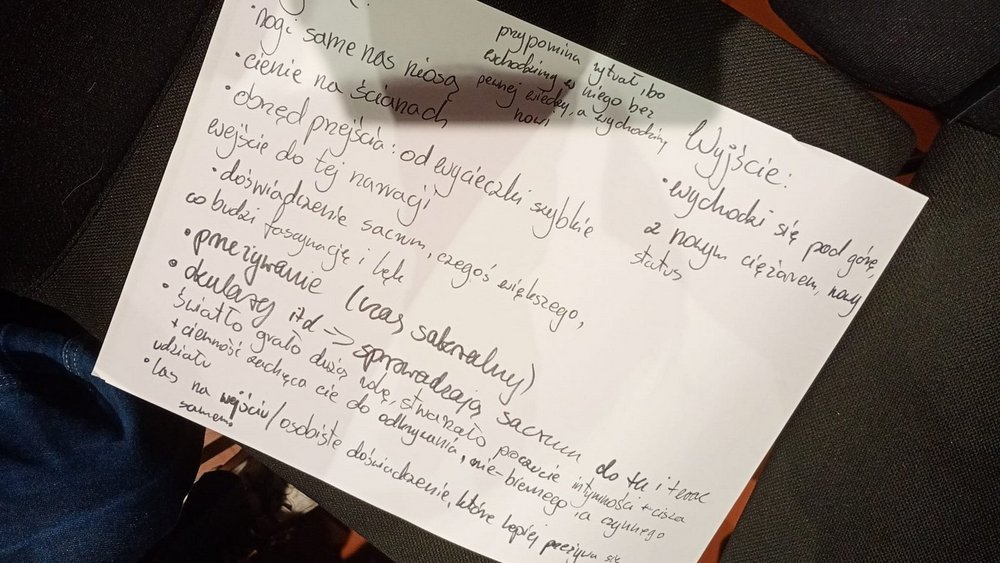 • nogi same nas niosą
• cienie na ścianach
• obrzęd przejścia: od wycieczki szybkie
wejście do tej narracji
• doświadczenie sacrum, czegoś większego,
co budzi fascynację i lęk
• przeżywanie (czas sakralny)
• okulary itd -> sprowadzają sacrum do tu i teraz
• światło grało dużą rolę, stwarzało poczucie intymności + cisza
+ ciemność zachęca cię do odkrywania, nie-biernego, a czynnego
udziału
• las na wejściu / osobiste doświadczenie, które lepiej przeżywa się
samemu
przypomina rytuał, bo
wchodzimy w niego bez
pewnej wiedzy, a wychodzimy
nowi
Wyjście:
• wychodzi się pod górę,
z nowym ciężarem, nowy
status